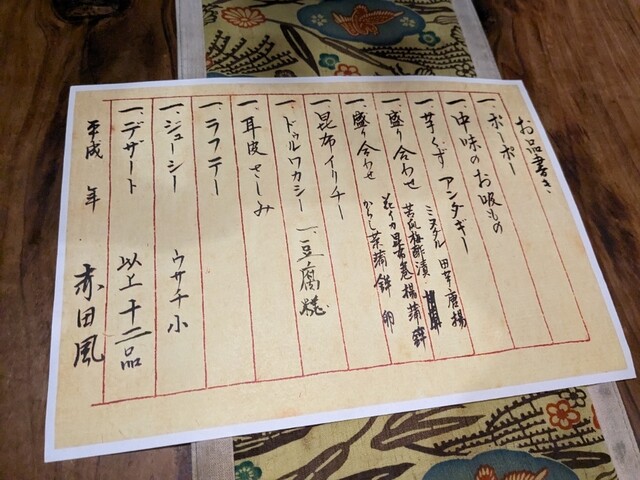 お品書き
一、ポーポー
一、中味のお吸もの
一、芋くずアンダギー
ミヌダル 田芋唐揚
一、盛り合わせ
苦瓜梅酢漬
一、盛り合わせ
花イカ 昆布巻 揚蒲鉾
からし菜蒲鉾 卵
一、昆布イリチー
一、ドゥルワカシー 一、豆腐糕
一、耳皮さしみ
一、ラフテー
一、ジューシー ウサチ小
一、デザート 以上十二品
平成 年 赤田風